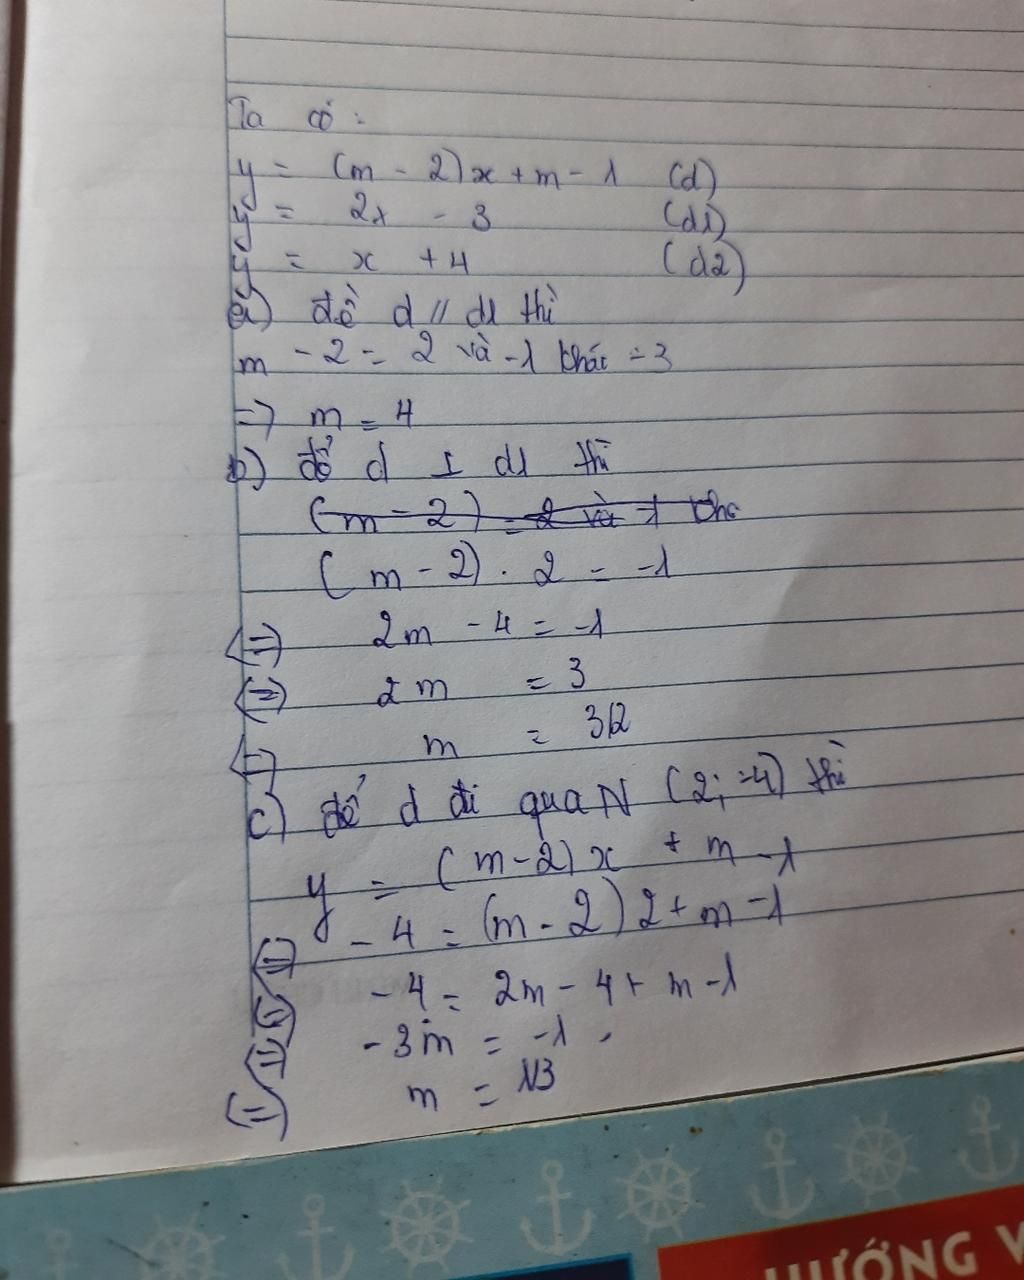 Ta có :
y = (m - 2)x + m - 1 (d)
y = 2x - 3 (d1)
y = x + 4 (d2)
a) để d // d1 thì
m - 2 = 2 và -1 khác -3
=> m = 4
b) để d ⊥ d1 thì
(m - 2) = 2 và -1 khá
(m - 2) . 2 = -1
<=> 2m - 4 = -1
<=> 2m = 3
<=> m = 3/2
c) để d đi qua N (2; -4) thì
y = (m-2)x + m - 1
<=> - 4 = (m - 2) 2 + m - 1
<=> - 4 = 2m - 4 + m - 1
<=> - 3m = -1
<=> m = 1/3
HƯỚNG